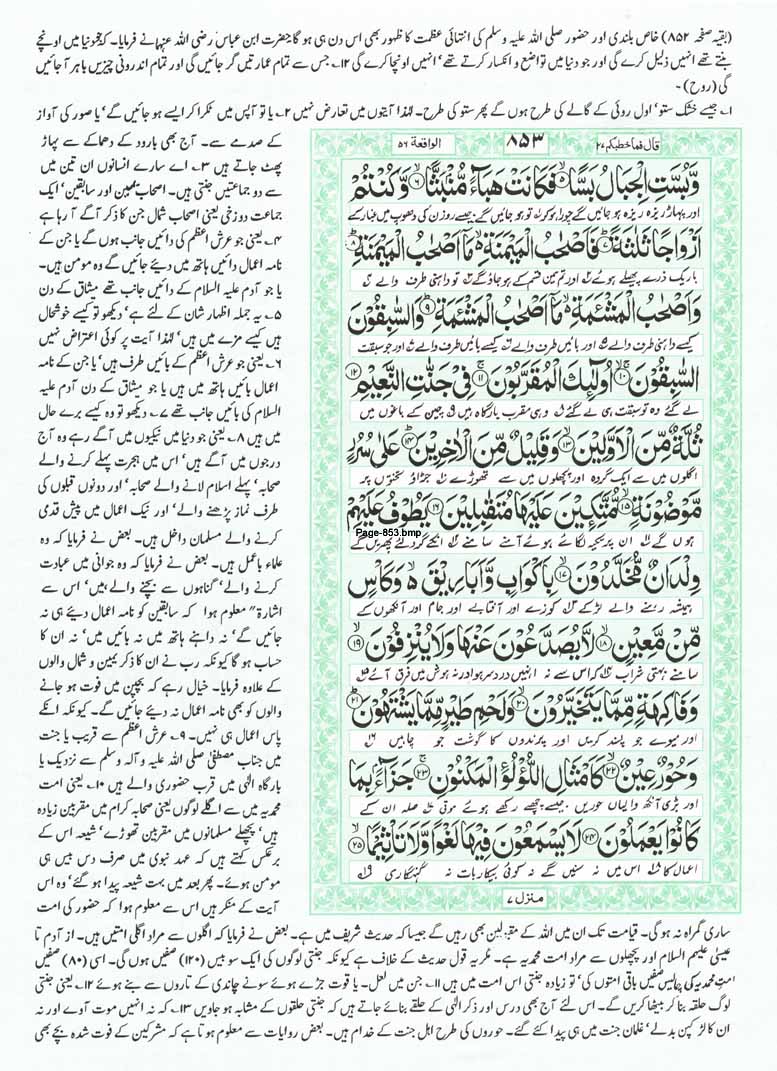 (بقیہ صفحہ ۸۵۲) خاص بلندی اور حضور صلی اللہ علیہ وسلم کی انتہائی عظمت کا ظہور بھی اس دن ہی ہو گا حضرت ابن عباس رضی اللہ عنہما نے فرمایا۔ کہ جو دنیا میں اونچے
بنتے تھے انہیں ذلیل کرے گی اور جو دنیا میں تواضع و انکسار کرتے تھے' انہیں اونچا کرے گی ۱۲؎ جس سے تمام عمارتیں گر جائیں گی اور تمام اندرونی چیزیں باہر آ جائیں
گی (روح)۔
۱؎ جیسے خشک ستو' اول روئی کے گالے کی طرح ہوں گے پھر ستو کی طرح۔ لہٰذا آیتوں میں تعارض نہیں ۲؎ یا تو آپس میں ٹکرا کر ایسے ہو جائیں گے' یا صور کی آواز
قال فما خطبکم ۲۷ ۸۵۳ الواقعة ۵۶
وَّبُسَّتِ الْجِبَالُ بَسًّا ۙ۵ فَكَانَتْ هَبَآءً مُّنْۢبَثًّا ۙ۶ وَّكُنْتُمْ
اور پہاڑ ریزہ ریزہ ہو جائیں گے چورا ہو کر تو ہو جائیں گے جیسے روزن کی دھوپ میں غبار کے
اَزْوَاجًا ثَلٰثَةً ؕ۷ فَاَصْحٰبُ الْمَيْمَنَةِ ۙ مَاۤ اَصْحٰبُ الْمَيْمَنَةِ ؕ۸
باریک ذرے پھیلے ہوئے اور تم تین قسم کے ہو جاؤ گے تو داہنی طرف والے
وَاَصْحٰبُ الْمَشْـَٔمَةِ ۙ مَاۤ اَصْحٰبُ الْمَشْـَٔمَةِ ؕ۹ وَالسّٰبِقُوْنَ
کیسے داہنی طرف والے اور بائیں طرف والے کیسے بائیں طرف والے اور جو سبقت
السّٰبِقُوْنَ ۙ۱۰ اُولٰٓئِكَ الْمُقَرَّبُوْنَ ۚ۱۱ فِيْ جَنّٰتِ النَّعِيْمِ ۱۲
لے گئے وہ تو سبقت ہی لے گئے وہی مقرب بارگاہ ہیں چین کے باغوں میں
ثُلَّةٌ مِّنَ الْاَوَّلِيْنَ ۙ۱۳ وَقَلِيْلٌ مِّنَ الْاٰخِرِيْنَ ؕ۱۴ عَلٰى سُرُرٍ
اگلوں میں سے ایک گروہ اور پچھلوں میں سے تھوڑے جڑاؤ تختوں پر
مَّوْضُوْنَةٍ ۙ۱۵ مُّتَّكِـِٕيْنَ عَلَيْهَا مُتَقٰبِلِيْنَ ۱۶ يَطُوْفُ عَلَيْهِمْ
Page-853.bmp
ہوں گے ان پر تکیہ لگائے ہوئے آمنے سامنے انکے گرد لئے پھریں گے
وِلْدَانٌ مُّخَلَّدُوْنَ ۙ۱۷ بِاَكْوَابٍ وَّاَبَارِيْقَ ۙ وَكَاْسٍ
ہمیشہ رہنے والے لڑکے کوزے اور آفتابے اور جام اور آنکھوں کے
مِّنْ مَّعِيْنٍ ۙ۱۸ لَّا يُصَدَّعُوْنَ عَنْهَا وَلَا يُنْزِفُوْنَ ۙ۱۹
سامنے بہتی شراب کہ اس سے نہ انہیں درد سر ہو اور نہ ہوش میں فرق آئے
وَفَاكِهَةٍ مِّمَّا يَتَخَيَّرُوْنَ ۙ۲۰ وَلَحْمِ طَيْرٍ مِّمَّا يَشْتَهُوْنَ ؕ۲۱
اور میوے جو پسند کریں اور پرندوں کا گوشت جو چاہیں
وَحُوْرٌ عِيْنٌ ۙ۲۲ كَاَمْثَالِ اللُّؤْلُؤِ الْمَكْنُوْنِ ۚ۲۳ جَزَآءًۢ بِمَا
اور بڑی آنکھ والیاں حوریں جیسے چھپے رکھے ہوئے موتی صلہ ان کے
كَانُوْا يَعْمَلُوْنَ ۲۴ لَا يَسْمَعُوْنَ فِيْهَا لَغْوًا وَّلَا تَاْثِيْمًا ۙ۲۵
اعمال کا اس میں نہ سنیں گے نہ کوئی بیکار بات نہ گنہگاری
منزل ۷
کے صدمے سے۔ آج بھی بارود کے دھماکے سے پہاڑ
پھٹ جاتے ہیں ۳؎ اے سارے انسانوں ان تین میں
سے دو جماعتیں جنتی ہیں۔ اصحاب یمین اور سابقین' ایک
جماعت دوزخی یعنی اصحاب شمال جن کا ذکر آگے آ رہا ہے
۴؎ یعنی جو عرش اعظم کی دائیں جانب ہوں گے یا جن کے
نامہ اعمال دائیں ہاتھ میں دیئے جائیں گے وہ مومن ہیں۔
یا جو آدم علیہ السلام کے دائیں جانب تھے میثاق کے دن
۵؎ یہ جملہ اظہار شان کے لئے ہے' دیکھو تو کیسے خوشحال
ہیں کیسے مزے میں ہیں' لہٰذا آیت پر کوئی اعتراض نہیں
۶؎ یعنی جو عرش اعظم کے بائیں طرف ہیں' یا جن کے نامہ
اعمال بائیں ہاتھ میں ہیں یا جو میثاق کے دن آدم علیہ
السلام کی بائیں جانب تھے ۷؎ دیکھو تو وہ کیسے برے حال
میں ہیں ۸؎ یعنی جو دنیا میں نیکیوں میں آگے رہے وہ آج
درجوں میں آگے ہیں' اس میں ہجرت پہلے کرنے والے
صحابہ' پہلے اسلام لانے والے صحابہ' اور دونوں قبلوں کی
طرف نماز پڑھنے والے' اور نیک اعمال میں پیش قدمی
کرنے والے مسلمان داخل ہیں۔ بعض نے فرمایا کہ وہ
علماء باعمل ہیں۔ بعض نے فرمایا کہ وہ جوانی میں عبادت
کرنے والے' گناہوں سے بچنے والے ہیں' اس سے
اشارةً معلوم ہوا کہ سابقین کو نامہ اعمال دیئے ہی نہ
جائیں گے' نہ داہنے ہاتھ میں نہ بائیں میں' نہ ان کا
حساب ہو گا کیونکہ رب نے ان کا ذکر یمین و شمال والوں
کے علاوہ فرمایا۔ خیال رہے کہ بچپن میں فوت ہو جانے
والوں کو بھی نامہ اعمال نہ دیئے جائیں گے۔ کیونکہ انکے
پاس اعمال ہی نہیں۔ ۹؎ عرش اعظم سے قریب یا جنت
میں جناب مصطفیٰ صلی اللہ علیہ و آلہ وسلم سے نزدیک یا
بارگاہ الٰہی میں قرب حضوری والے ہیں ۱۰؎ یعنی امت
محمدیہ میں سے اگلے لوگوں یعنی صحابہ کرام میں مقربین زیادہ
ہیں' پچھلے مسلمانوں میں مقربین تھوڑے' شیعہ اس کے
برعکس کہتے ہیں کہ عہد نبوی میں صرف دس بیس ہی
مومن ہوئے۔ پھر بعد میں بہت شیعہ پیدا ہو گئے' وہ اس
آیت کے منکر ہیں اس سے معلوم ہوا کہ حضور کی امت
ساری گمراہ نہ ہوگی۔ قیامت تک ان میں اللہ کے مقبولین بھی رہیں گے جیسا کہ حدیث شریف میں ہے۔ بعض نے فرمایا کہ اگلوں سے مراد اگلی امتیں ہیں۔ از آدم تا
عیسیٰ علیہم السلام اور پچھلوں سے مراد امت محمدیہ ہے۔ مگر یہ قول حدیث کے خلاف ہے کیونکہ جنتی لوگوں کی ایک سو بیس (۱۲۰) صفیں ہوں گی۔ اسی (۸۰) صفیں
امت محمدیہ کی چالیس صفیں باقی امتوں کی' تو زیادہ جنتی اس امت میں ہیں ۱۱؎ جن میں لعل۔ یا قوت جڑے ہوئے سونے چاندی کے تاروں سے بنے ہوئے ۱۲؎ یعنی جنتی
لوگ حلقہ بنا کر بیٹھا کریں گے۔ اس لئے آج بھی درس اور ذکر الٰہی کے حلقے بنائے جاتے ہیں کہ جنتی حلقوں کے مشابہ ہو جاویں ۱۳؎ کہ نہ انہیں موت آوے اور نہ
ان کا لڑکپن بدلے' غلمان جنت میں ہی پیدا کئے گئے۔ حوروں کی طرح اہل جنت کے خدام ہیں۔ بعض روایات سے معلوم ہوتا ہے کہ مشرکین کے فوت شدہ بچے بھی